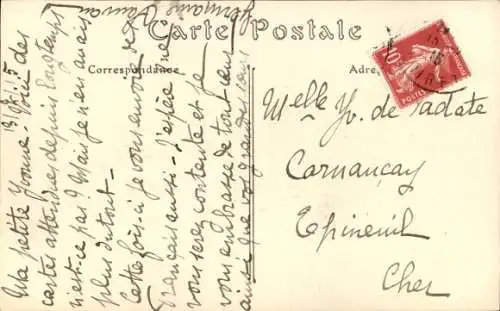 Carte Postale
Correspondance
Adre
13
Ma petite Yvonne - Voici des
cartes attendues depuis longtemps
n'est-ce pas? Mais je n'en avais
plus du tout -
Cette fois-ci je vous envoie de
Français aussi - J'espère
vous serez contente et je
vous embrasse de tout cœur
ainsi que vos grandes sœurs
Germaine
10
POSTES
Melle Y. de
Cornançay
Epineuil
Cher